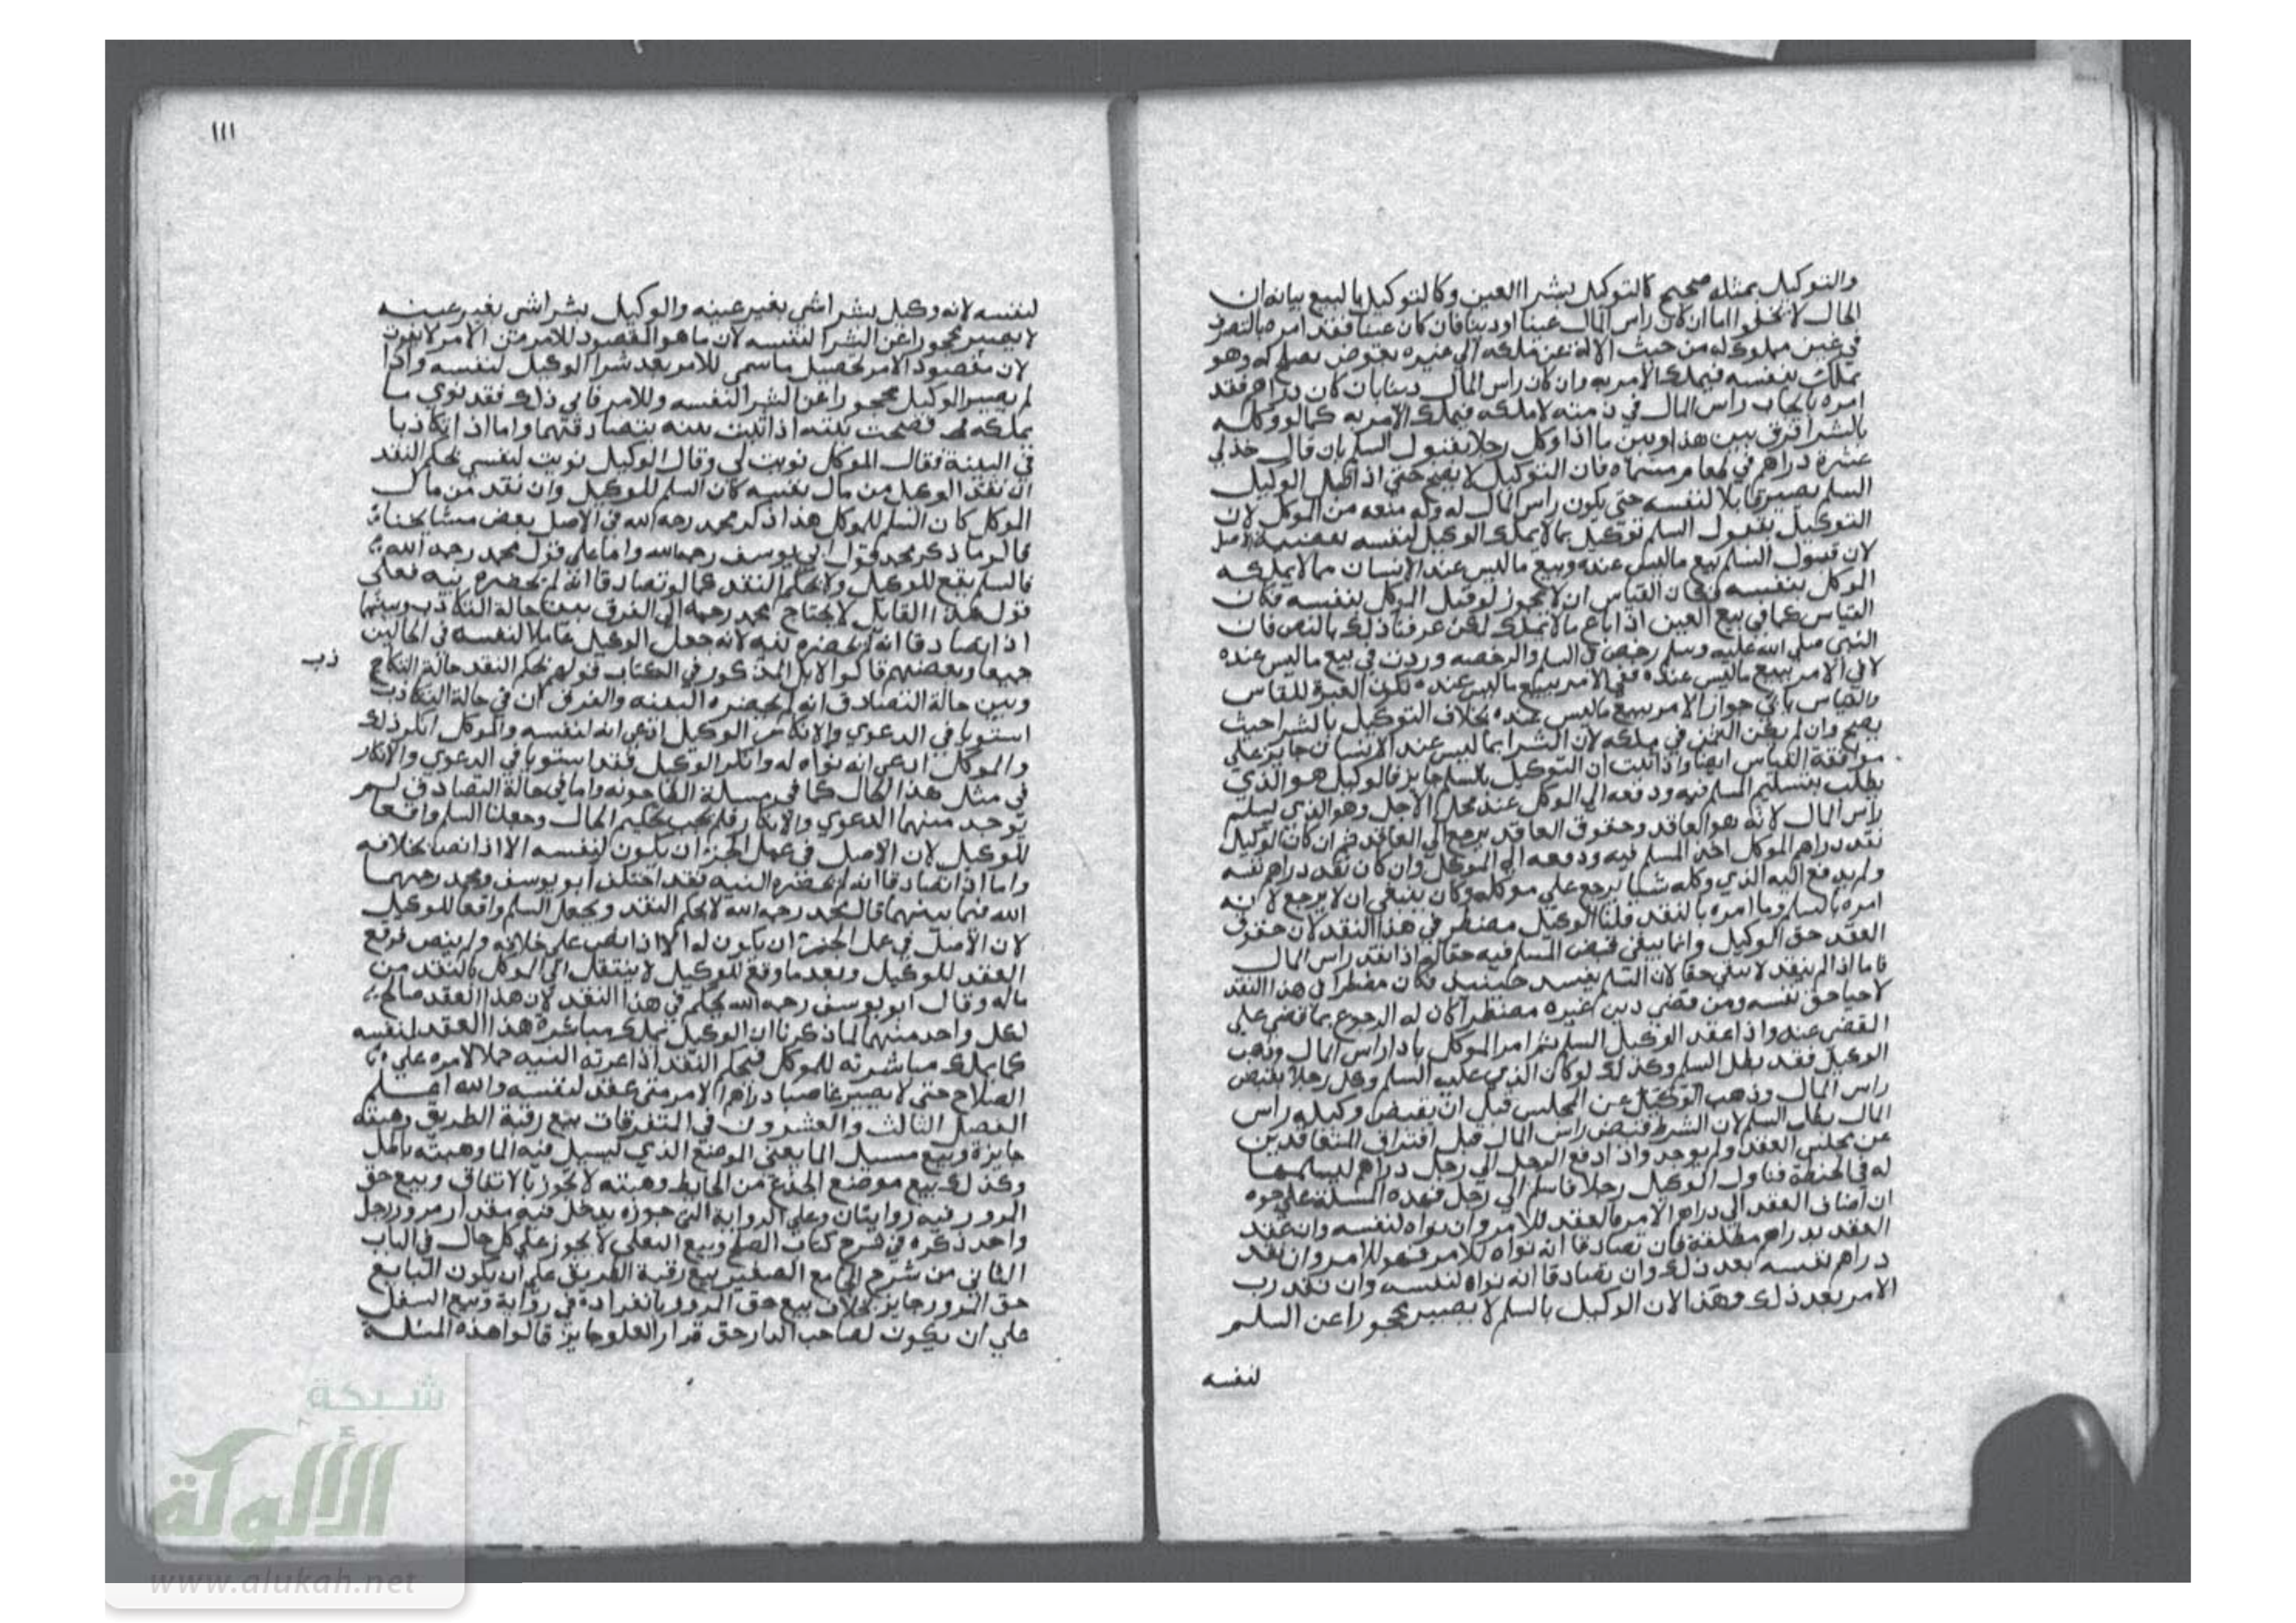 والتوكيل بمثله صحيح كالتوكيل بشرا العين وكالتوكيل بالبيع بيانه ان
الحال لا يخلوا اما ان كان راس المال عينا او دينا فان كان عينا فقد امره بالتصرف
في عين مملوك له من حيث الازالة عن ملكه الي غيره بعوض يصلح له وهو
يملك بنفسه فيملك الامر به وان كان راس المال دينا بان كان دراهم فقد
امره بايجاب راس المال في ذمته لا ملكه فيملك الامر به كما لو وكله
بالشرا فرق بين هذا وبين ما اذا وكل رجلا بقبول السلم بان قال خذ لي
عشرة دراهم في طعام مسماه فان التوكيل لا يصح حتي اذا قبل الوكيل
السلم يصير قابلا لنفسه حتي يكون راس المال له وله منعه من الموكل لان
التوكيل بقبول السلم توكيل بما لا يملك الوكيل لنفسه
لان قبول السلم بيع ما ليس عنده وبيع ما ليس عند الانسان مما لا يملكه
الموكل بنفسه فكان القياس ان لا يجوز لو قبل الموكل بنفسه فكان
القياس كما في بيع العين اذا باع ما لا يملك لكن عرفنا ذلك بالنص فان
النبي صلي الله عليه وسلم رخص في السلم والرخصه وردت في بيع ما ليس عنده
لا في الامر ببيع ما ليس عنده ففي الامر ببيع ما ليس عنده تكون العبرة للقياس
والقياس يابي جواز الامر ببيع ما ليس عنده بخلاف التوكيل بالشرا حيث
يصح وان لم يكن الثمن في ملكه لان الشرا بما ليس عند الانسان جايز علي
موافقة القياس ايضا واذا ثبت ان التوكيل بالسلم جايز فالوكيل هو الذي
يطلب بتسليم المسلم فيه ودفعه الي الموكل عند محل الاجل وهو الذي يسلم
راس المال لانه هو العاقد وحقوق العاقد يرجع الي العاقد ثم ان كان الوكيل
نقد دراهم الموكل اخذ المسلم فيه ودفعه الي الموكل وان كان نقد دراهم نفسه
ولم يدفع اليه الذي وكله شيا يرجع علي موكله وكان ينبغي ان لا يرجع لانه
امره بالسلم وما امره بالنقد قلنا الوكيل مضطر في هذا النقد لان حقوق
العقد حق الوكيل وانما يبقي قبض المسلم فيه حقا له اذا نقد راس المال
فاما اذا لم ينقد لا يبقي حقا لان السلم يفسد حينيذ فكان مضطرا في هذا النقد
لاحيا حق نفسه ومن قضي دين غيره مضطرا كان له الرجوع بما قضي علي
القضي عنه واذا عقد الوكيل السلم ثم امر الموكل باداراس المال وذهب
الوكيل فقد بطل السلم وكذلك لو كان الذي عليه السلم وكل رجلا بقبض
راس المال وذهب الوكيل عن المجلس قبل ان يقبض وكيله راس
المال بطل السلم لان الشرط قبض راس المال قبل افتراق المتعاقدين
عن مجلس العقد ولم يوجد واذا دفع الرجل الي رجل دراهم ليسلمها
له في الحنطة فناول الوكيل رجلا فاسلم الي رجل فهذه المسلة علي وجوه
ان اضاف العقد الي دراهم الامر فالعقد للامر وان نواه لنفسه وان عقد
العقد بدراهم مطلقة فان تصادقا انه نواه للامر فهو للامر وان نقد
دراهم نفسه بعد ذلك وان تصادقا انه نواه لنفسه وان نقد رب
الامر بعد ذلك وهذا لان الوكيل بالسلم لا يصير محجورا عن السلم
لنفسه
١١١
لنفسه لانه وكل بشرا شي بغير عينه والوكيل بشرا شي بغير عينه
لا يصير محجورا عن الشرا لنفسه لان ما هو المقصود للامر من الامر لا يفوت
لان مقصود الامر تحصيل ما سمي للامر بعد شرا الوكيل لنفسه واذا
لم يصير الوكيل محجورا عن الشرا لنفسه وللامر فاي ذلك فقد نوي ما
يملكه فصحت نيته اذا ثبت نيته بتصادقهما واما اذا تكاذبا
في النية فقال الموكل نويت لي وقال الوكيل نويت لنفسي يحكم النقد
ان نقد الوكيل من مال نفسه كان السلم للوكيل وان نقد من مال
الموكل كان السلم للموكل هذا ذكر محمد رحمه الله في الاصل بعض مشايخنا
قالوا ما ذكر محمد قول ابي يوسف رحمه الله واما علي قول محمد رحمه الله
فالسلم يقع للوكيل ولا يحكم النقد كما لو تصادقا انه لم يحضره نيه فعلي
قول هذا القايل لا يحتاج محمد رحمه الله الي الفرق بين حالة التكاذب وبينما
اذا تصادقا انه لم يحضره نيه لانه جعل الوكيل عاملا لنفسه في الحالين
جميعا وبعضهم قالوا لا بل المذكور في الكتاب قولهم يحكم النقد حالة التكا
ذب
وبين حالة التصادق انه لم يحضره النيه والفرق ان في حالة التكاذب
استويا في الدعوي والانكار الوكيل ادعي انه لنفسه والموكل انكر ذلك
والموكل ادعي انه نواه له وانكر الوكيل فقد استويا في الدعوي والانكار
في مثل هذا الحال كما في مسلة الطاحونه واما في حالة التصادق لم
توجد منهما الدعوي والانكار فلم يجب تحكيم الحال وجعلنا السلم واقعا
للوكيل لان الاصل في عمل الحر ان يكون لنفسه الا اذا نص بخلافه
واما اذا تصادقا انه لم يحضره النية فقد اختلف ابو يوسف ومحمد رحمهما
الله فيما بينهما قال محمد رحمه الله لا يحكم النقد ويجعل السلم واقعا للوكيل
لان الاصل في عمل الحر ان يكون له الا اذا نص علي خلافه ولم ينص فوقع
العقد للوكيل وبعد ما وقع للوكيل لا ينتقل الي الموكل بالنقد من
ماله وقال ابو يوسف رحمه الله يحكم في هذا النقد لان هذا العقد صالح
لكل واحد منهما لما ذكرنا ان الوكيل يملك مباشرة هذا العقد لنفسه
كما يملك مباشرته للموكل فيحكم النقد اذا عرته النيه حملا لامره علي
الصلاح حتي لا يصير غاصبا دراهم الامر متي عقد لنفسه والله اعلم
الفصل الثالث والعشرون في المتفرقات بيع رقبة الطريق وهبته
جايزة وبيع مسيل الما يعني الموضع الذي ليسيل فيه الما وهبته باطل
وكذلك بيع موضع الجذع من الحايط وهبته لا يجوز بالاتفاق وبيع حق
المرور فيه روايتان وعلي الرواية التي جوزه يدخل فيه مقدار مرور رجل
واحد ذكره في شرح كتاب الصلح وبيع التعلي لا يجوز علي كل حال في الباب
الثاني من شرح الجامع الصغير بيع رقبة الطريق علي ان يكون للبايع
حق المرور جايز بخلاف بيع حق المرور بانفراده في رواية وبيع السفل
علي ان يكون لصاحب الدار حق قرار العلو جايز قالوا هذه المسلة
شبكة
الألوكة
www.alukah.net